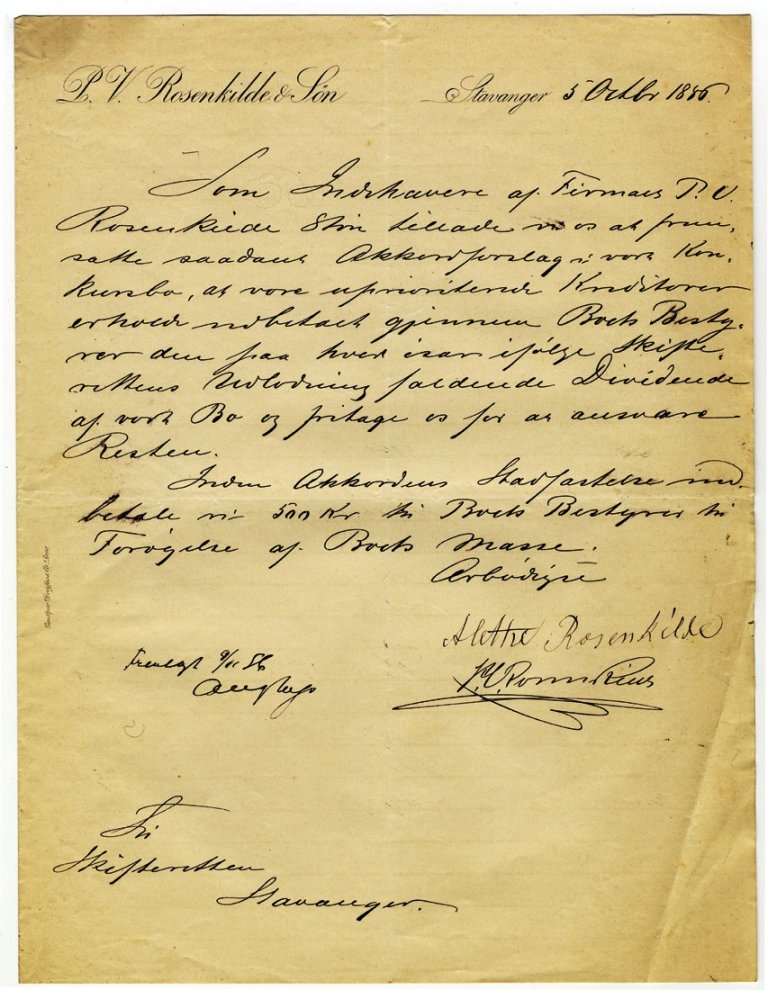 P. V. Rosenkilde & Søn Stavanger 5 Octbr 1886.
Som Indehavere af Firmaet P. V.
Rosenkilde & Søn tillade vi os at frem-
sætte saadant Akkordforslag i vort Kon-
kursbo, at vore uprioriterede Kreditorer
erholde udbetalt gjennem Boets Besty-
rer den paa hver især ifølge Skifte-
rettens Udlodning faldende Dividende
af vort Bo og fritage os for at ansvare
Resten.
Inden Akkordens Stadfæstelse ind-
betale vi 500 Kr til Boets Bestyrer til
Forøgelse af Boets Masse.
Ærbødigst
Alethe Rosenkilde
P. V. Rosenkilde
Fremlagt 9/11 86
Til
Skifteretten
Stavanger.